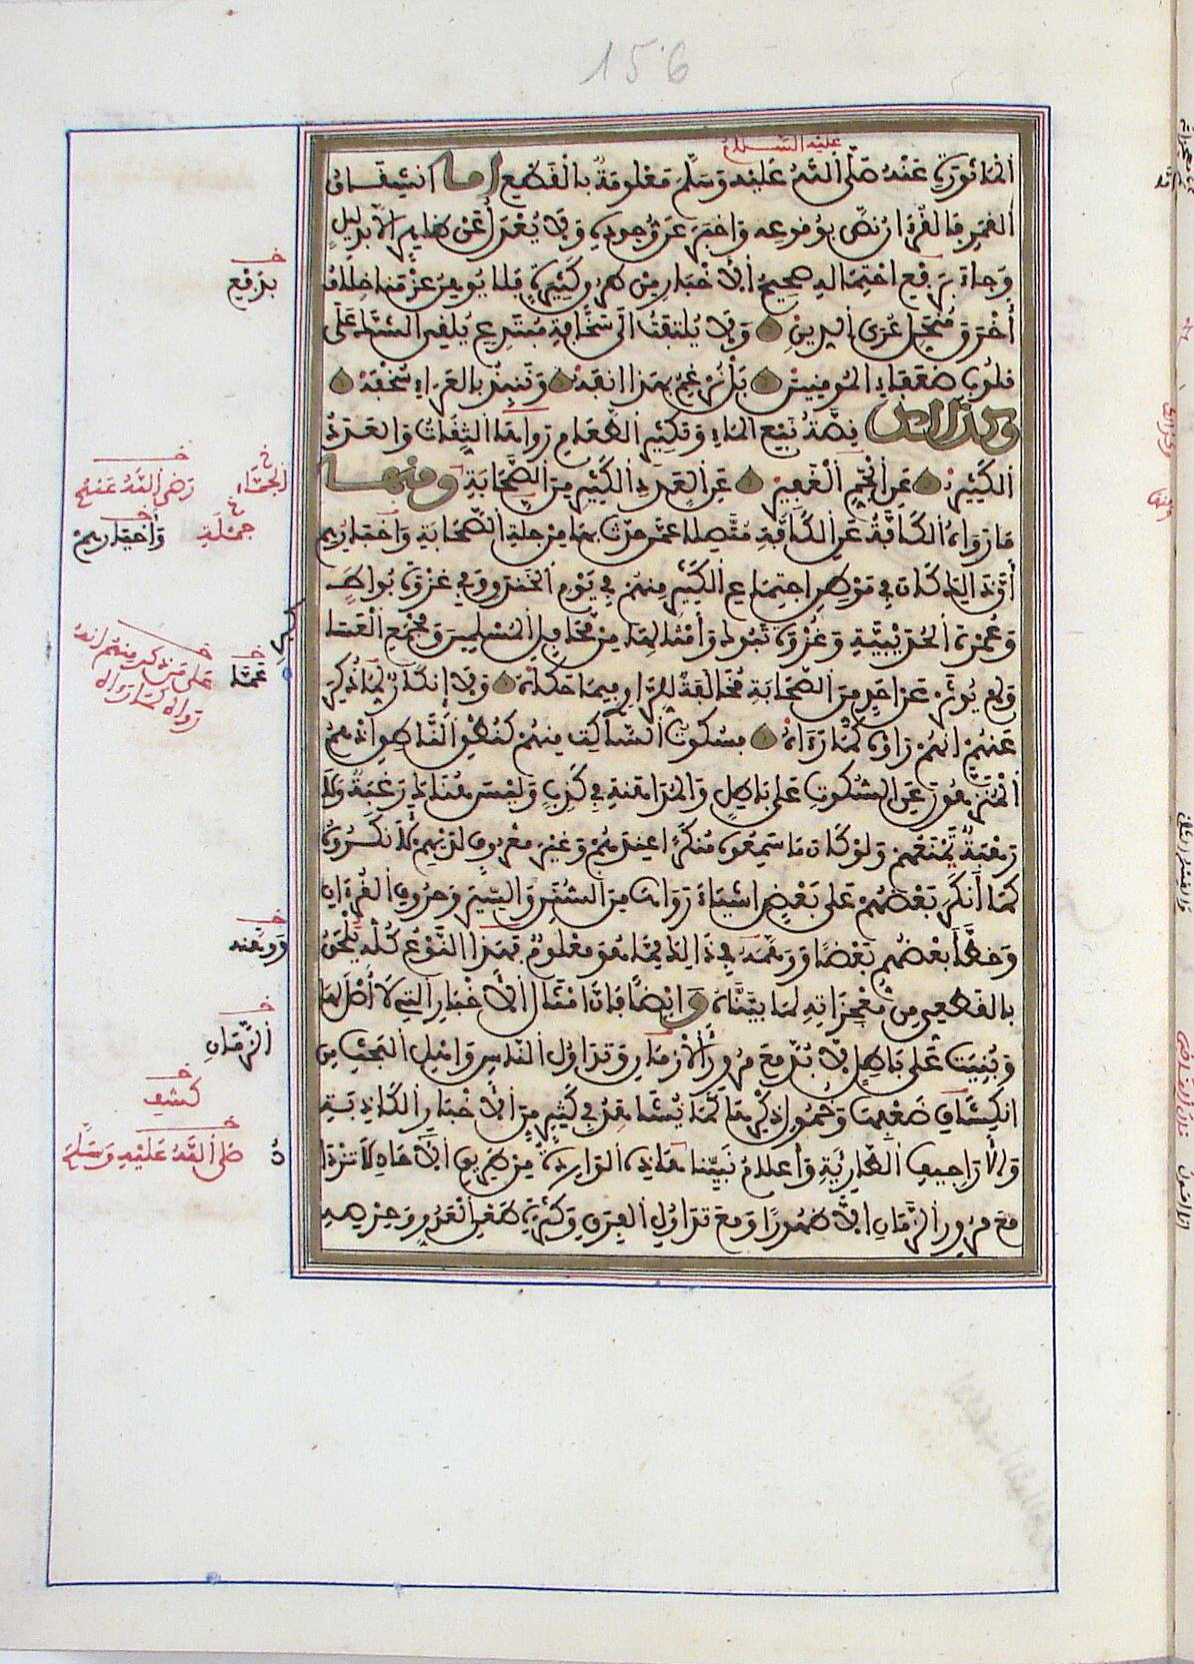 156
عليه السلام
المأثورة عنه صلى الله عليه وسلم معلومة بالقطع أما انشقاق
القمر فالقرءان نص بوقوعه وأخبر عن وجوده ولا يعدل عن ظاهر إلا بدليل
وجاء برفع احتماله صحيح الأخبار من طرق كثيرة فلا يوهن عزمنا خلاف
أخرق منحل عرى الدين ولا يلتفت إلى سخافة مبتدع يلقي الشك على
قلوب ضعفاء المؤمنين بل نرغم بهذا أنفه وننبذ بالعراء سخفه
وكذلك قصة نبع الماء وتكثير الطعام رواها الثقات والعدد
الكثير عن الجم الغفير عن العدد الكثير من الصحابة ومنها
ما رواه الكافة عن الكافة متصلا عمن حدث بها من جلة الصحابة وأخبارهم
أن ذلك كان في موطن اجتماع الكثير منهم في يوم الخندق وفي غزوة بواط
وعمرة الحديبية وغزوة تبوك وأمثالها من محافل المسلمين ومجمع العسا
ولم يؤثر عن أحد من الصحابة مخالفة للراوي فيما حكاه ولا إنكار لما ذكر
عنهم أنهم رأوه كما رءاه فسكوت الساكت منهم كنطق الناطق إذ هم
المنزهون عن السكوت على باطل والمداهنة في كذب وليس هناك رغبة ولا
رهبة تمنعهم ولو كان ما سمعوه منكرا عندهم وغير معروف لديهم لأنكروه
كما أنكر بعضهم على بعض أشياء رواها من السنن والسير وحروف القرءان
وخطأ بعضهم بعضا ووهمه في ذلك مما هو معلوم فهذا النوع كله يلحق
بالقطعي من معجزاته لما بيناه وأيضا فإن أمثال الأخبار التي لا أصل لها
وبنيت على باطل لا بد مع مرور الأزمان وتداول الناس وأهل البحث من
انكشاف ضعفها وخمول ذكرها كما يشاهد في كثير من الأخبار الكاذبة
والأراجيف الطارئة وأعلام نبينا هذه الواردة من طريق الآحاد لا تزداد
مع مرور الزمان إلا ظهورا ومع تداول الفرق وكثرة طعن العدو وحرصه
برفع
الجماء
رضي الله عنهم
جملة
وأخبارهم
كر
عما
على من ذكر منهم أنه
رواه كما رواه
ووهنه
الزمان
كشف
صلى الله عليه وسلم